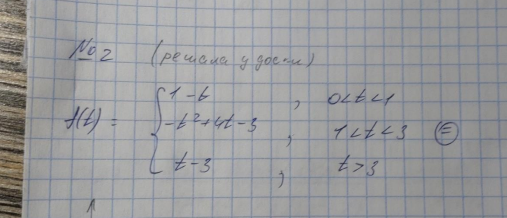 №2 (решала у доски)
1-t , 0<t<1
f(t) = { -t²+4t-3 , 1<t<3 (=)
t-3 , t>3